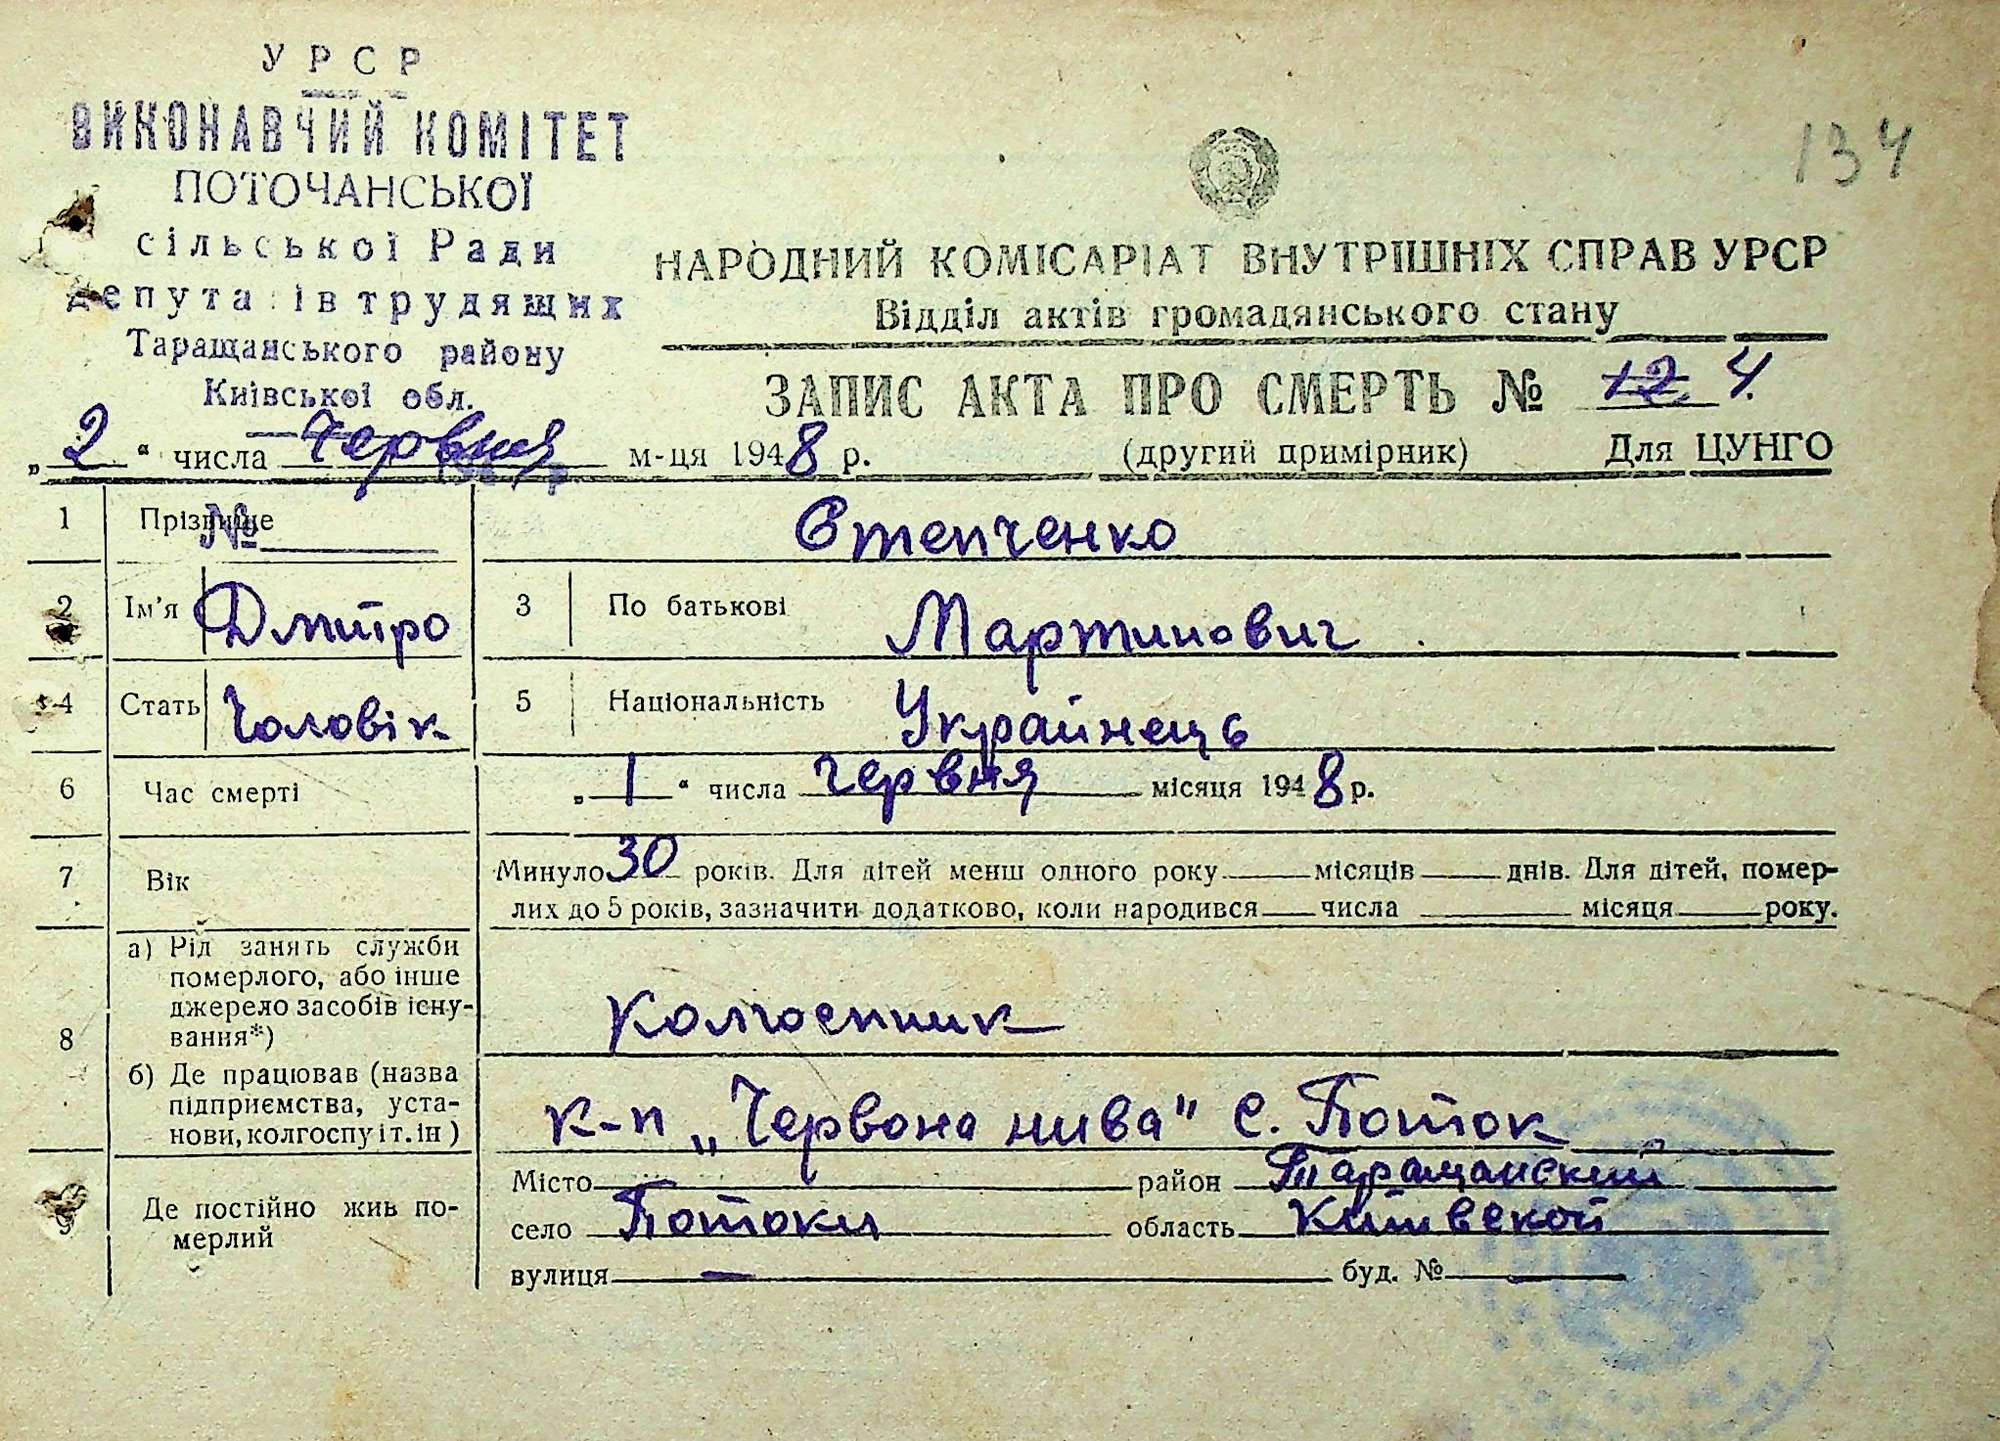 УРСР
ВИКОНАВЧИЙ КОМІТЕТ
ПОТОЧАНСЬКОЇ
сільської Ради
депутатів трудящих
Таращанського району
Київської обл.
134
НАРОДНИЙ КОМІСАРІАТ ВНУТРІШНІХ СПРАВ УРСР
Відділ актів громадянського стану
ЗАПИС АКТА ПРО СМЕРТЬ № 12 4.
„2“ числа Червня м-ця 1948 р. (другий примірник) Для ЦУНГО
1 Прізвище Степченко
№
2 Ім'я Дмитро 3 По батькові Мартинович
4 Стать Чоловік 5 Національність Украйнець
6 Час смерті „1“ числа Червня місяця 1948 р.
7 Вік Минуло 30 років. Для дітей менш одного року місяців днів. Для дітей, помер-
лих до 5 років, зазначити додатково, коли народився числа місяця року.
8 а) Рід занять служби
померлого, або інше
джерело засобів існу-
вання*) Колгоспник
б) Де працював (назва
підприємства, уста-
нови, колгоспу і т. ін) к-п „Червона нива" С. Поток
9 Де постійно жив по-
мерлий
Місто район Таращанский
село Потоки область Киівской
вулиця — буд. № —